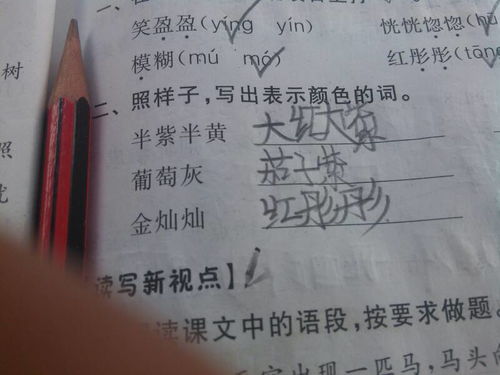 笑盈盈(yíng yín) 恍恍惚惚(hū
树 模糊(mú mó) 红彤彤(tōn
二、照样子,写出表示颜色的词。
半紫半黄 大红大紫
照 葡萄灰 茄子紫
金灿灿 红彤彤
读写新视点】
读课文中的语段,按要求做题。
出现一匹马,马头向